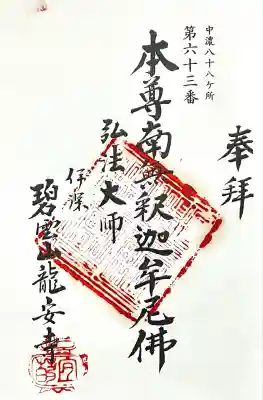 奉拝
中濃八十八ヶ所
第六十三番
本尊南無釈迦牟尼佛
弘法大師
伊深
碧雲山龍安寺